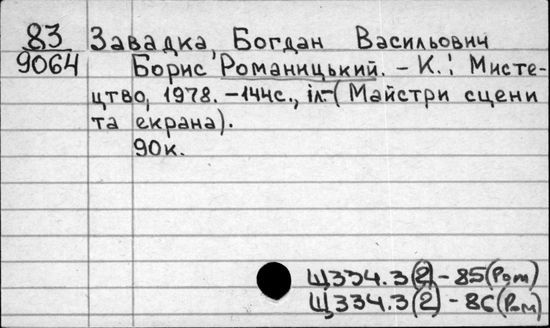 83 Завадка, Богдан Васильович
9064 Борис Романицький. - К.: Мисте-
цтво, 1978. - 144с., іл-(Майстри сцени
та екрана).
90к.
Щ334.3(2) - 85(Ром)
Щ334.3(2) - 86(Ром)